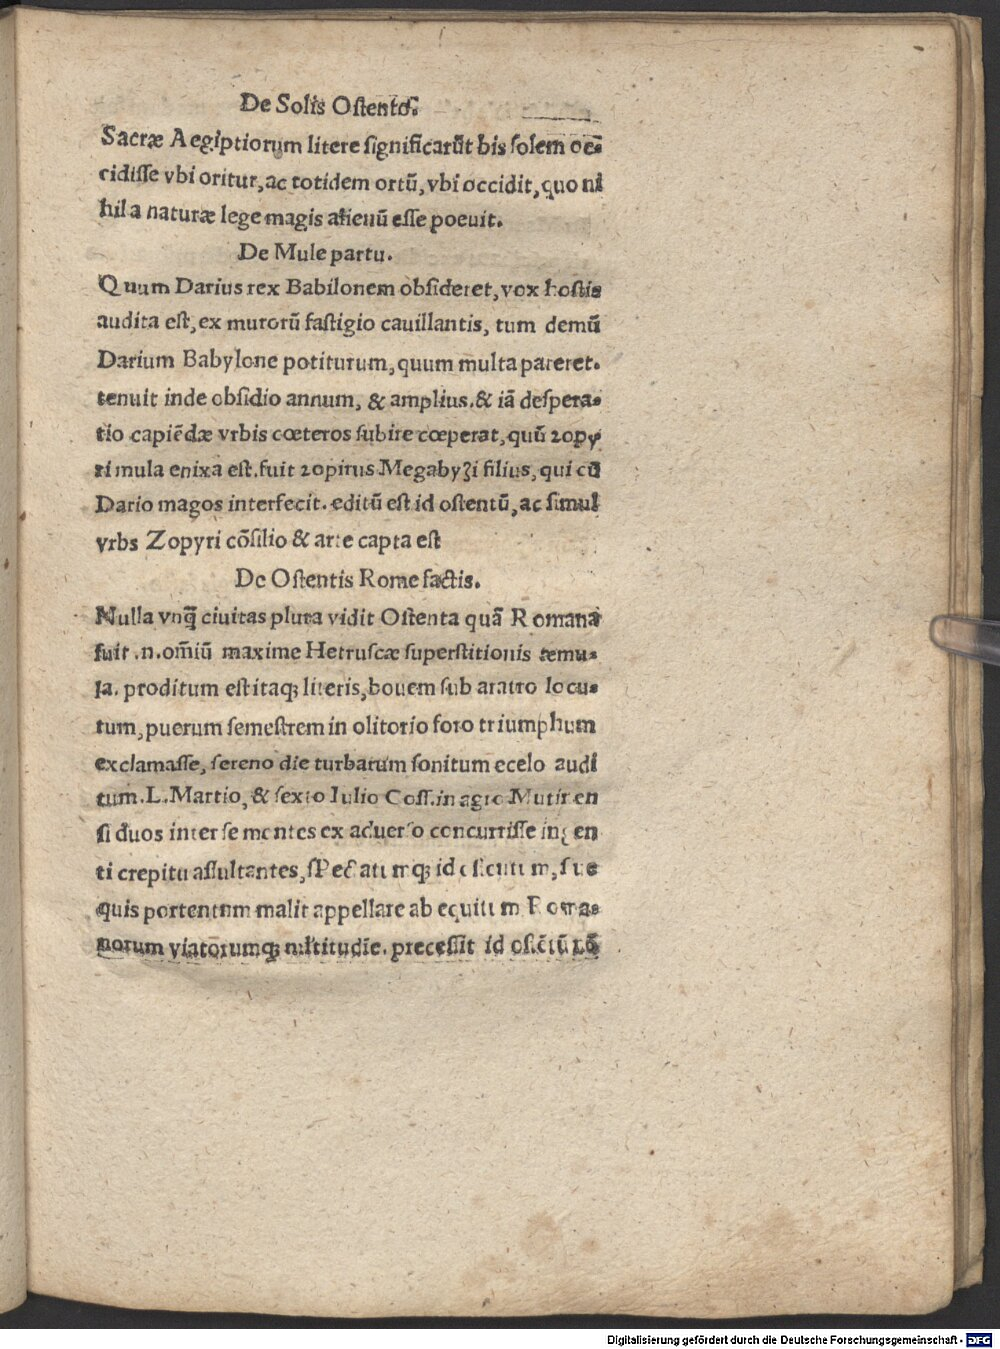 De Solis Oſtento.
Sacræ Aegiptiorum litere ſignificarūt bis ſolem oc⸗
cidiſſe vbi oritur, ac totidem ortū, vbi occidit, quo ni
hil a naturæ lege magis alienū eſſe poeuit.
De Mule partu.
Quum Darius rex Babilonem obſideret, vox hoſtis
audita eſt, ex murorū faſtigio cauillantis, tum demū
Darium Babylone potiturum, quum multa pareret.
tenuit inde obſidio annum, & amplius. & iā deſpera⸗
tio capiēdæ vrbis cœteros ſubire cœperat, quū zopy
ri mula enixa eſt. fuit zopirus Megabyʒi filius, qui cū
Dario magos interfecit. editū eſt id oſtentū, ac ſimul
vrbs Zopyri cōſilio & arte capta eſt
De Oſtentis Rome factis.
Nulla vnq̄ ciuitas plura vidit Oſtenta quā Romana
fuit .n. om̄iū maxime Hetruſcæ ſuperſtitionis æmu⸗
la. proditum eſt itaqꝫ literis, bouem ſub aratro locu⸗
tum, puerum ſemeſtrem in olitorio foro triumphum
exclamaſſe, ſereno die turbarum ſonitum ecelo audi
tum. L. Martio, & ſexto Iulio Coſſ. in agro Mutinen
ſi duos inter ſe montes ex aduerſo concurriſſe ingen
ti crepitu aſſultantes, ſpectatumqꝫ id
quis portentum malit appellare ab equitum Roma⸗
norum viatorumqꝫ mltitudīe. preceſſit id oſtētū
Digitalisierung gefördert durch die Deutsche Forschungsgemeinschaft - DFG